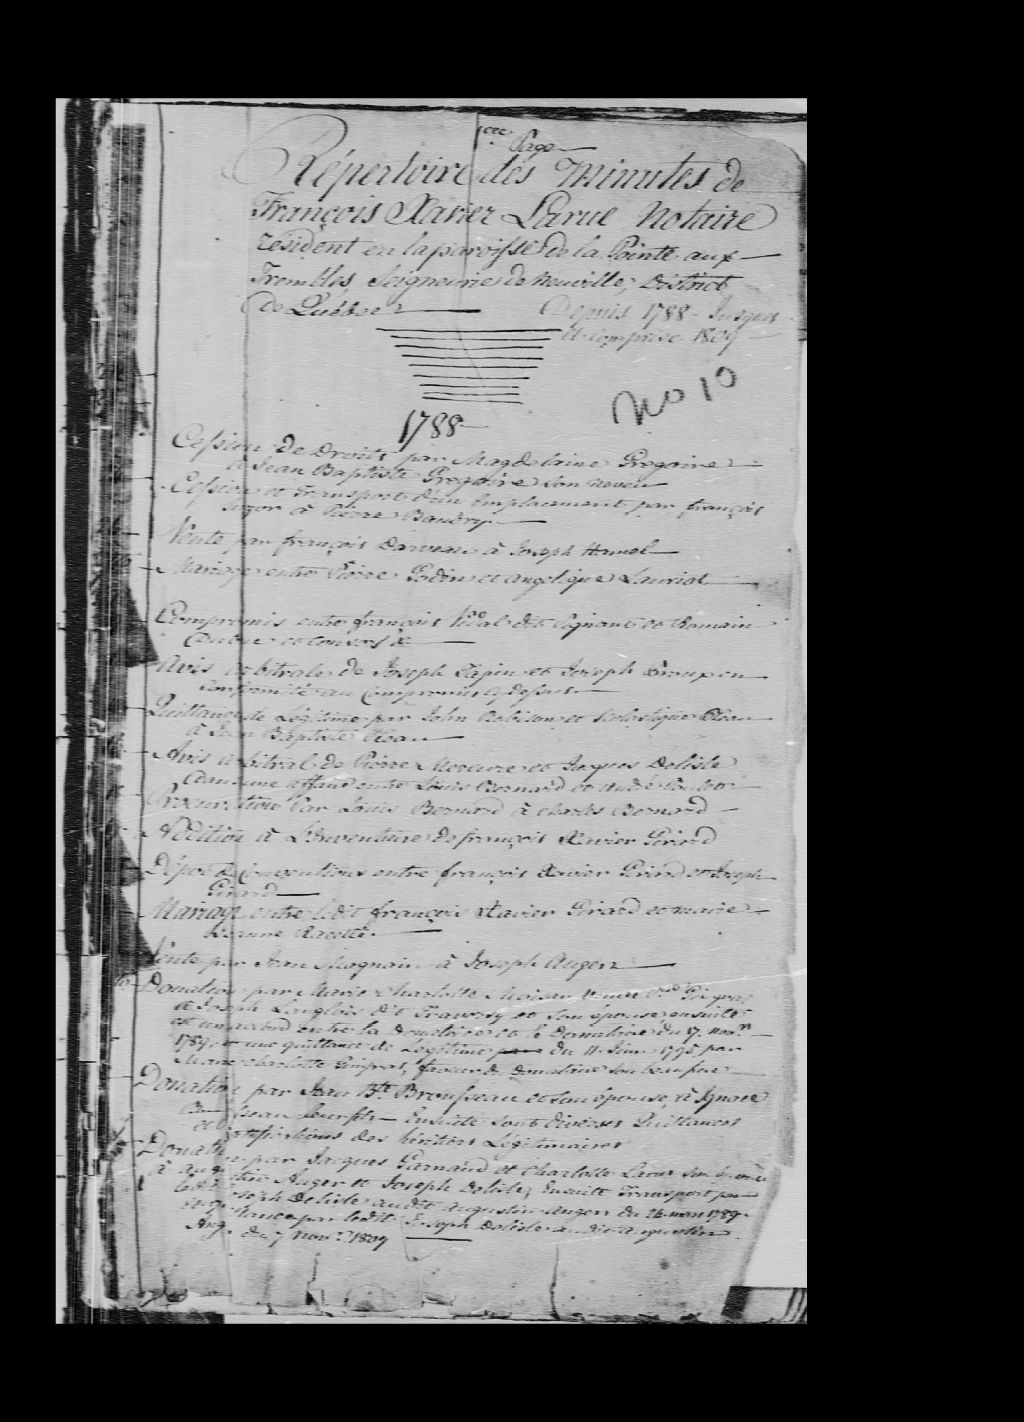 1ere Page
Répertoire des Minutes de
François Xavier Larue Notaire
résident en la paroisse de la Pointe aux
Trembles Seigneurie de Neuville, District
de Québec
Depuis 1788 - Jusques
et comprise 1809
No 10
1788
Cession de Droits par Magdelaine Grégoire
à Jean Baptiste Grégoire son neveu
Cession et Transport d'un Emplacement par françois
à Pierre Baudry
Vente par françois Darveau à Joseph Hamel
Mariage entre Pierre Godin et angelique Lauriot
Compromis entre françois Vidal dit et Romain
Dubuc et Consors &
Avis arbitrale de Joseph Papin et Joseph Proux en
conformité au Compromis cydessus
Quittance de Légitime par John Robison et Scolastique
à Jean Baptiste
Avis arbitral de Pierre Mercure et Jacques Delisle
Dans une affaire entre Louis Bernard et André
Procuration par Louis Bernard à Charles Bernard
Addition à L'Inventaire de françois Xavier Girard
Dépôt de Conventions entre françois Xavier Girard et Joseph
Girard
Mariage entre ledit françois Xavier Girard et marie
Racette
Vente par Jean Magnan à Joseph Auger
Donation par Marie Charlotte Moisan Veuve
à Joseph Langlois dit Traversy et son épouse ensuite
est un accord entre la Donatrice et le Donataire du 17. nov.
1789, et une quittance de Légitime du 11. Juin 1795 par
Marie Charlotte faveur du donataire son beaufrere
Donation par Jean Bte Brousseau et son épouse, à Ignace
Brousseau leur fils - Ensuite sont diverses Quittances
et des héritiers Légitimaires
Donation par Jacques Garnaud et Charlotte Larue son épouse
à Augustin Auger et Joseph Delisle; Ensuite Transport par
ledit Joseph Delisle audit Augustin Auger du 26 mars 1789.
et quittance par ledit Joseph Delisle audit Augustin
Aug. du 7 Nov. 1809